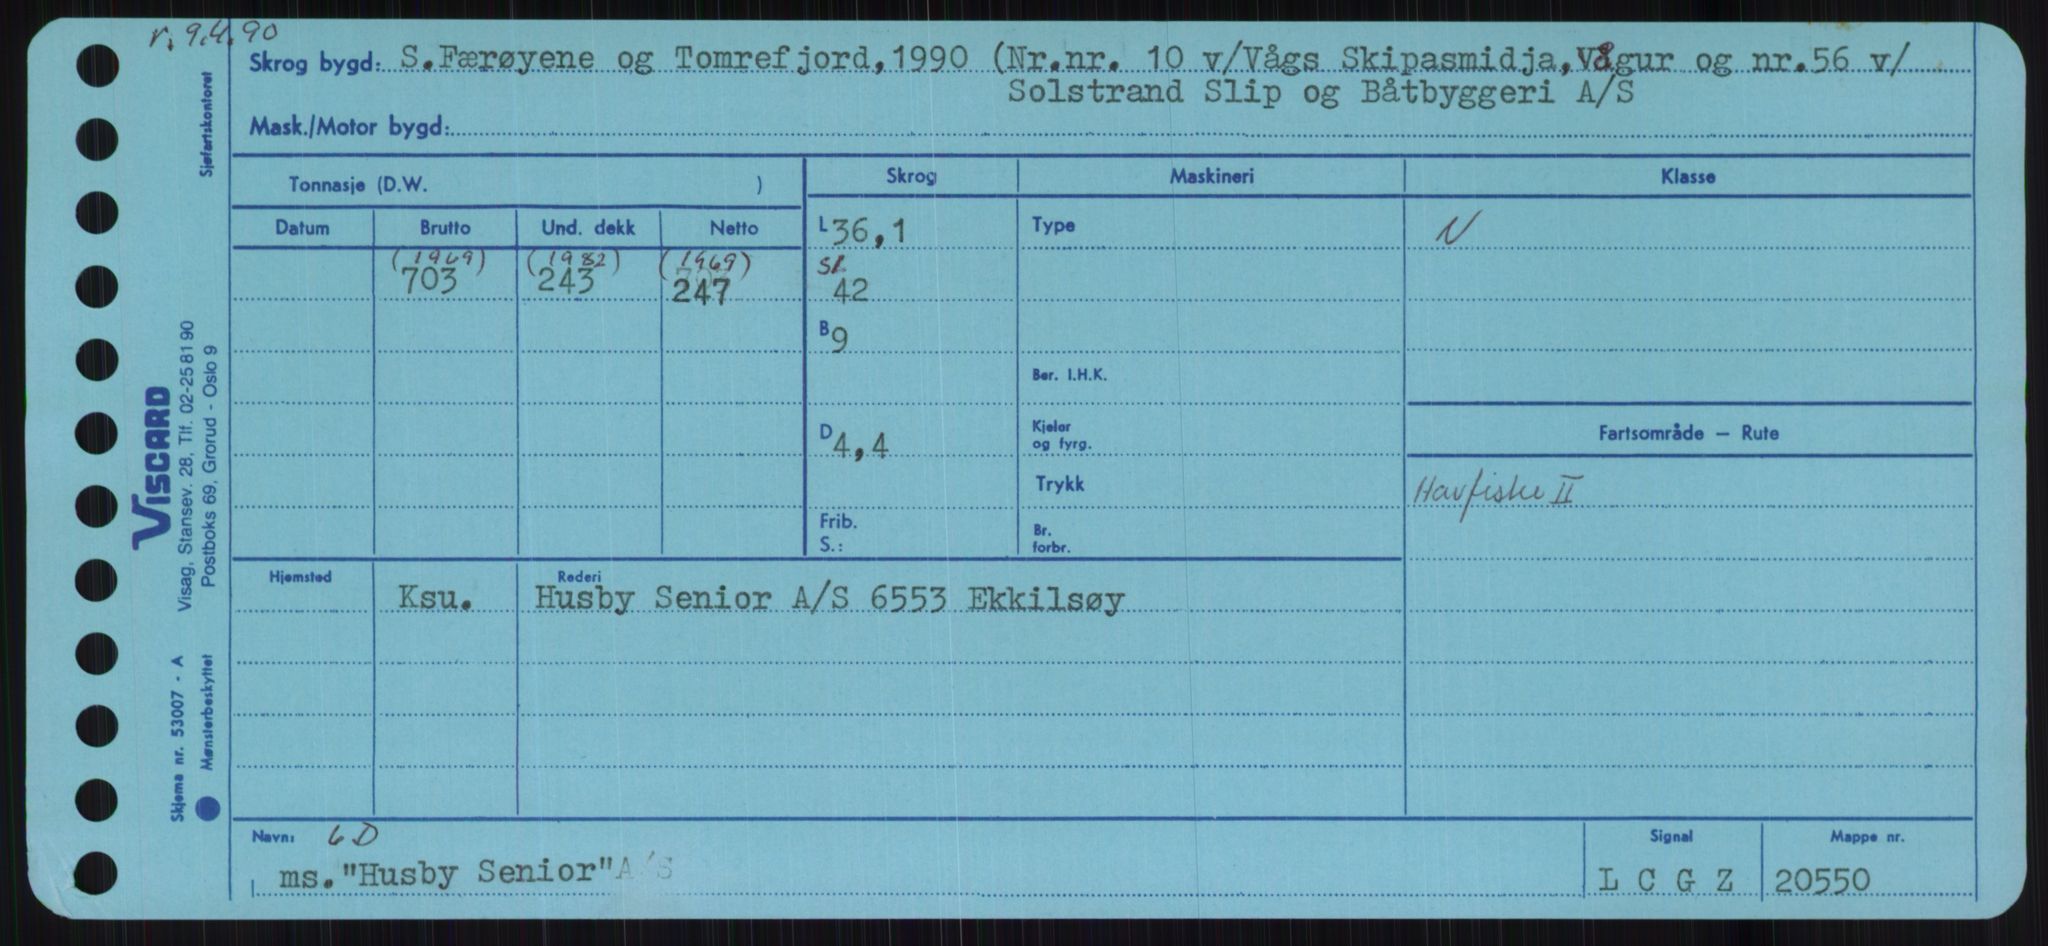 r. 9.4.90
Skrog bygd: S.Færøyene og Tomrefjord, 1990 (Nr.nr. 10 v/Vågs Skipasmidja, Vågur og nr.56 v/
Solstrand Slip og Båtbyggeri A/S
Mask./Motor bygd:
Sjøfartskontoret
Tonnasje (D.W. )
Skrog
Maskineri
Klasse
Datum
Brutto
Und. dekk
Netto
L 36,1
Type
N
(1969) (1982) (1969)
703 243 247
SL
42
B 9
Ber. I.H.K.
D 4,4
Kjeler
og fyrg.
Fartsområde – Rute
Trykk
Havfiske II
Frib.
S.:
Br.
forbr.
Hjemsted
Rederi
Ksu. Husby Senior A/S 6553 Ekkilsøy
VISCARD
Visag, Stansev. 28, Tlf. 02-25 81 90
Postboks 69, Grorud - Oslo 9
Skjema nr. 53007 - A
Mønsterbeskyttet
Navn: 6D
ms. "Husby Senior" A/S
Signal
L C G Z
Mappe nr.
20550